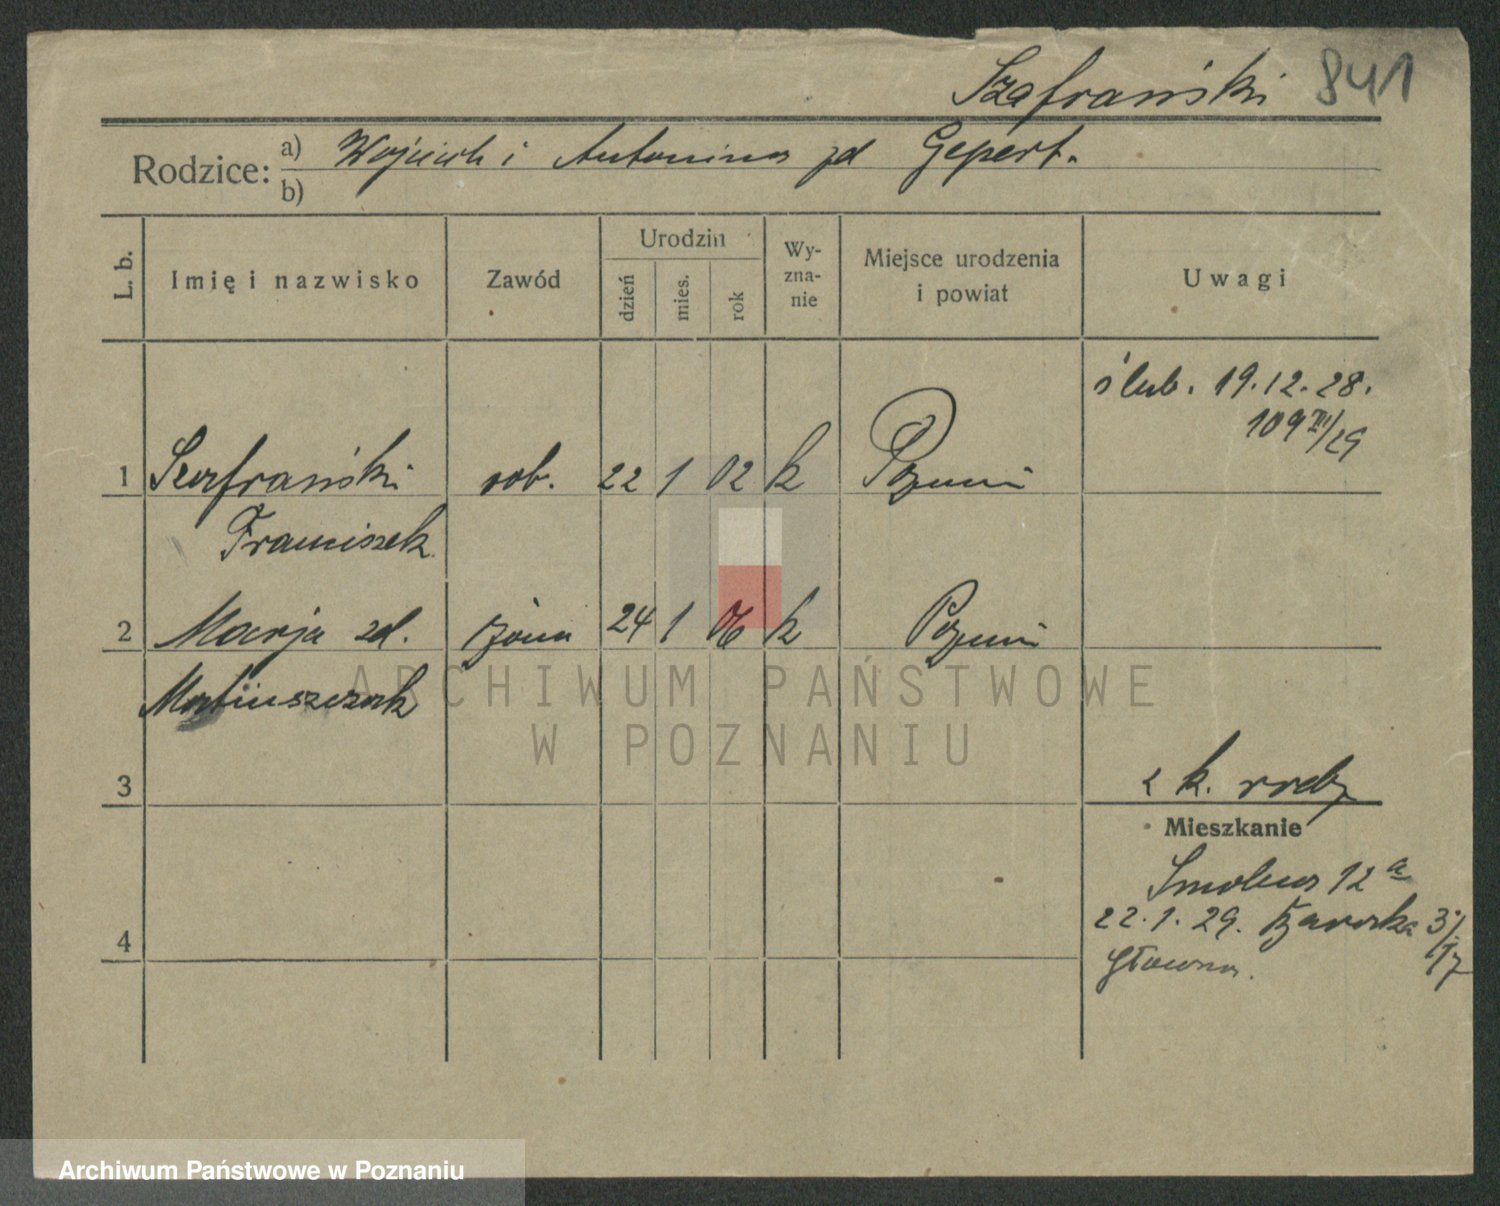 Szafrański 841
Rodzice: a) Wojciech i Antonina zd Gepert.
b)
L. b.
Imię i nazwisko
Zawód
Urodzin
dzień
mies.
rok
Wy-
zna-
nie
Miejsce urodzenia
i powiat
Uwagi
ślub. 19.12.28.
109 III/29
1 Szafrański rob. 22 1 02 k Poznań
Franciszek
2 Marja zd. żona 24 1 06 k Poznań
Matuszczak
3
z k. rodz
Mieszkanie
Smolna 12a
22.1.29.
Główna.
4
ARCHIWUM PAŃSTWOWE
W POZNANIU
Archiwum Państwowe w Poznaniu